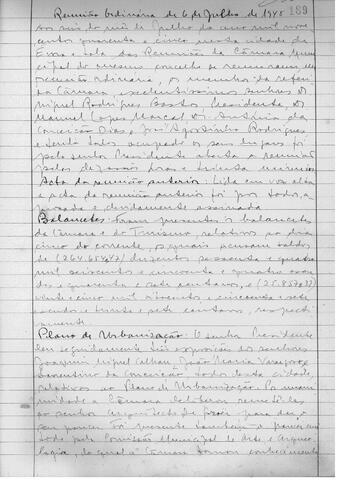 Reunião Ordinária de 6 de Julho de 1945
189
Aos seis do mês de Julho do ano mil nove
centos quarenta e cinco, nesta cidade de
e sala das Reuniões da Câmara Muni
cipal do mesmo concelho se reuniram em
reunião ordinária, os membros da referi
da Câmara, excelentíssimos senhores
Miguel Rodrigues Bastos, Presidente,
Manuel Lopes Marçal, António da
Conceição Dias e José Agostinho Rodrigues
e sendo tales ocupado os seus lugares foi
pelo senhor Presidente aberta a reunião
pelas dezasseis horas e trinta minutos
Acta da reunião anterior: Lida em voz alta
a acta da reunião anterior foi por todos a
provada e devidamente assinada
Balancetes: Foram presentes os balancetes
da Câmara e do Turismo, relativos ao dia
cinco do corrente, os quais acusam saldos
de (264.654$47) duzentos sessenta e quatro
mil seiscentos e cincoenta e quatro escu
dos e quarenta e sete centavos, e (25.857$37)
vinte e cinco mil oitocentos e cincoenta e sete
escudos e trinta e sete centavos, respecti
vamente
Plano de Urbanização: O senhor Presidente
leu seguidamente três exposições dos senhores
Joaquim Miguel João Maria
da Conceição, todos desta cidade,
relativos ao Plano de Urbanização. Por unani
midade a Câmara deliberou remetê-las
ao senhor arquitecto para dar o
seu parecer. Foi presente também o parecer emi
tido pela Comissão Municipal de Arte e Arqueo
logia, do qual a Câmara tomou conhecimento